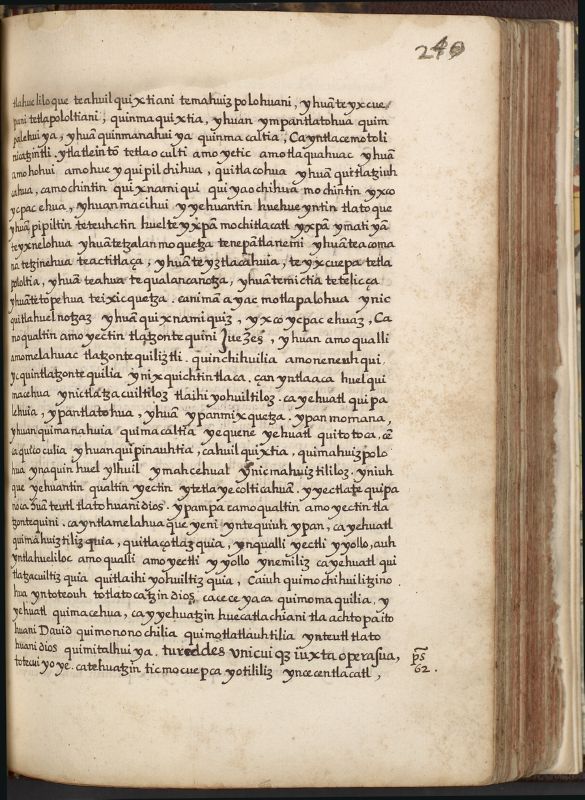 240
tlahueliloque teahuil quixtiani temahuiz polohuani, yhuā te yx cue
pani tetlapololtiani, quinmaquixtia, yhuan ympantlatohua quim
palehuiya, yhuā quinmanahuiya quinmacaltia, Ca yntlacemotoli
nicatzintli. ytlatleintō tetlaoculti amo yetic amotlaquahuac yhuā
amo hohui amo huey quipilchihua, quitlacohua yhuā quitlatziuh
cahua, camochintin quixnamiqui quiyaochihuā mochintin yxco
ycpac ehua, yhuan macihui yyehuantin huehueyntin tlatoque
yhuā pipiltin teteuhctin huel teyxpā mochitlacatl yxpā ymatiyā
teyxnelohua yhuā tetzalan moquetza tenepātla nemi yhuā teacoma
na tetzinehua teactitlaça, yhuā te yztlacahuia, te yx cuepa tetla
pololtia, yhuā teahua tequalancanotza, yhuā temictia tetelicça
yhuā tetopehua teixicquetza. canimā ayac motlapalohua ynic
quitlahuelnotzaz yhuā quixnamiquiz, yxco ycpac ehuaz, Ca
noqualtin amo yectin tlatzontequini Juezes, yhuan amo qualli
amo melahuac tlatzontequiliztli. quinchihuilia amo neneuhqui.
yc quintlatzontequilia ynixquichtin tlaca. çan yntlaaca huel qui
macehua ynic tlatzacuiltiloz tlaihiyohuiltiloz. ca yehuatl quipa
lehuia, ypantlatohua, yhuā ypanmixquetza. ypan momana,
yhuan quimanahuia quimacaltia yequene yehuatl quitotoca, cē
ca quicoculia yhuan quipinauhtia, cahuilquixtia, quimahuizpolo
hua ynaquin huel ylhuil ymahcehual ynic mahuiztililoz. yniuh
que yehuantin qualtin yectin ytetlayecolticahuā. yyectlate quipa
noca Dūā teutl tlatohuani dios. ypampa camo qualtin amo yectin tla
tzontequini. ca yntlamelahua que yeni yntequiuh ypan, ca yehuatl
quimahuiztiliz quia, quitlaçotlaz quia, ynqualli yectli yyollo, auh
yntlahueliloc amo qualli amo yectli yyollo ynemiliz ca yehuatl qui
tlatzacuiltiz quia quitlaihiyohuiltiz quia, Caiuh quimochihuilitzino
hua yntoteouh totlatocatzin dios cacece yaca quimomaquilia. y
yehuatl quimacehua, ca yyehuatzin huecatlachiani tlaachtopaito
huani David quimononochilia quimotlatlauhtilia ynteutl tlato
huani dios quimitalhuiya. tu reddes unicuiqz iuxta opera sua,
totecuiyoye. ca tehuatzin ticmocuepcayotililiz yncecentlacatl,
ps̄
62.